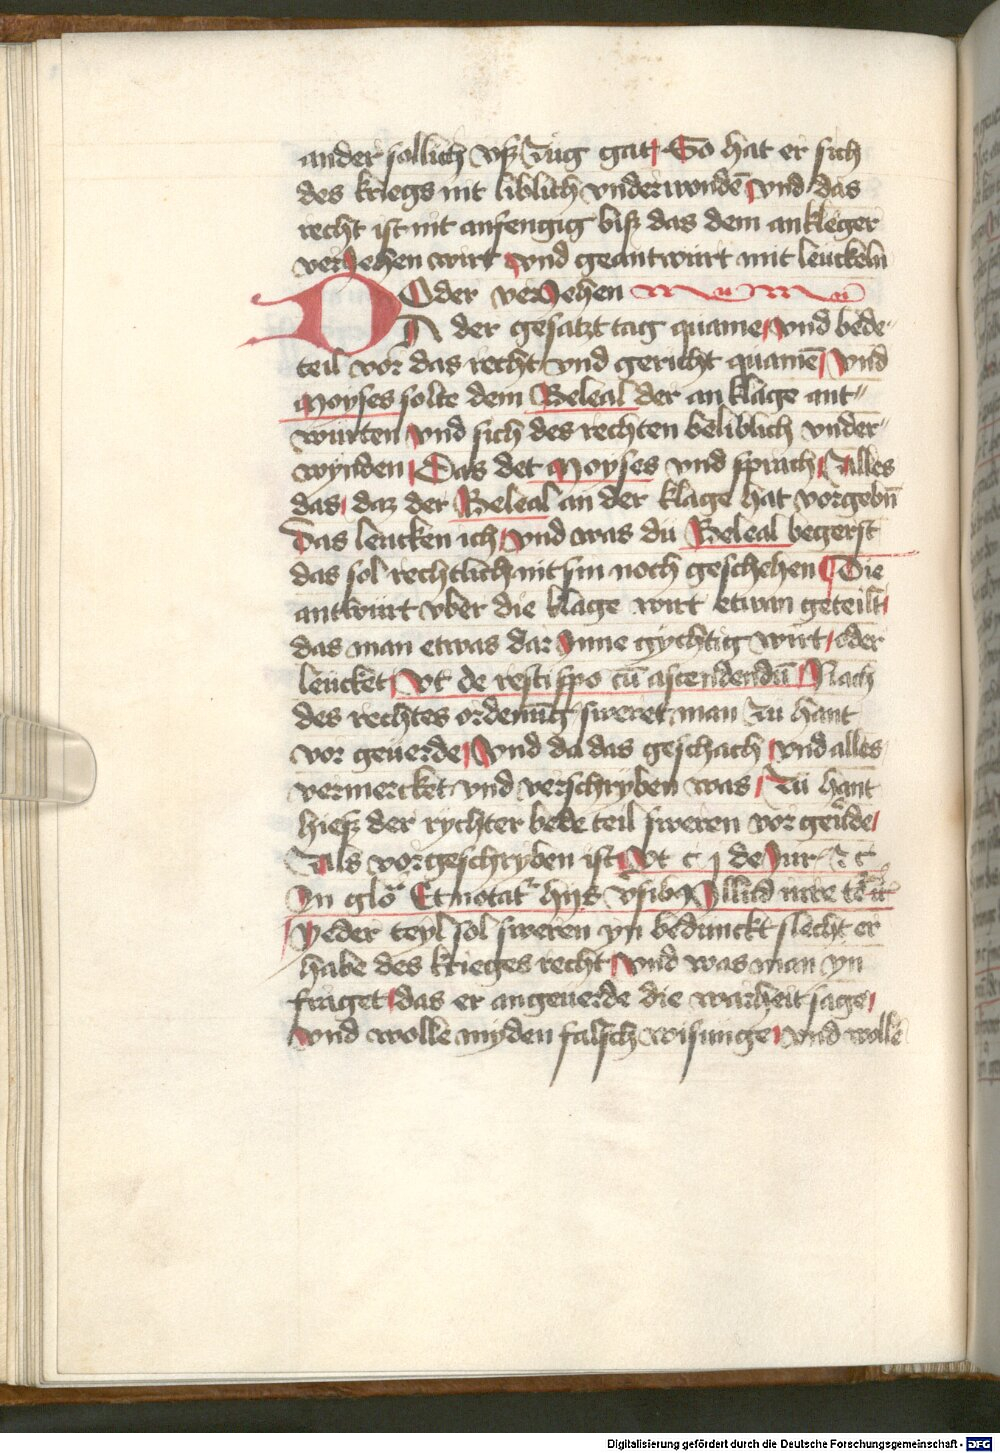 ander sollich vß zug gat So hat er sich
des kriegs nit liblich vnderwondē vnd das
recht ist nit anfengig biß das dem ankleger
veriehen wirt vnd geantwurt mit leuckeln
Oder veriehen
DA der gesatzt tag quame vnd bede
teil vor das recht vnd gericht quamē vnd
Moyses solte dem Beleal der an klage ant
wurten vnd sich des rechten beliblich vnder
wynden Das det Moyses vnd sprach Alles
das daz der Beleal an der klage hat vorgebn̄
Das leucken ich vnd was du Beleal begerst
das sol rechtlich nit sin noch geschehen Die
antwurt vber die klage wirt etwan geteilt
das man etwas dar Inne gychtig wirt oder
leucket vt de resti spo cū ascendendū Nach
des rechtes ordenūg sweret man zu hant
vor geuerde Vnd da das geschach vnd alles
vermercket vnd verschryben was Zu hant
hieß der rychter bede teil sweren vor geūde
Als vorgeschryben ist Vt c j de Iur
In glo Et notat hijs Illud iure
Yeder teyl sol sweren yn bedunckt slecht er
habe des krieges recht vnd was man yn
fraget das er angeuerde die warheit sage
vnd wolle myden falsch wisunge vnd wolle
Digitalisierung gefördert durch die Deutsche Forschungsgemeinschaft - DFG